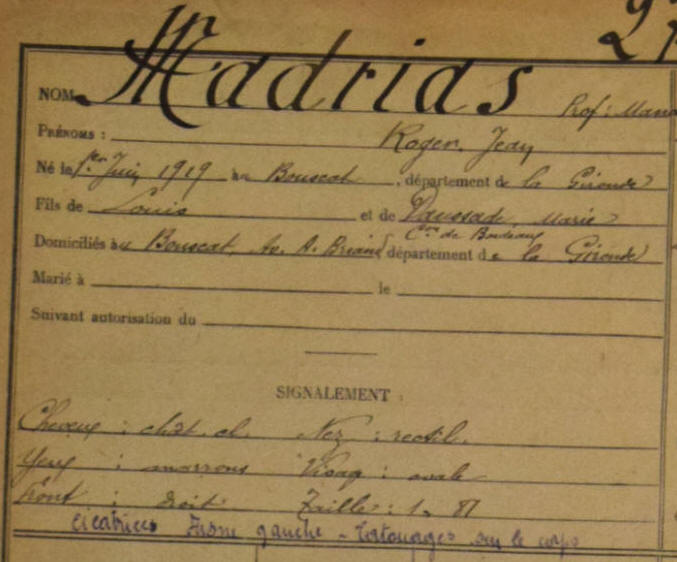 NOM Madrias Prof: Mano
PRÉNOMS : Roger Jean
Né le 1er Juin 1919 au Bouscat, département de la Gironde
Fils de Louis et de Daussade, Marie
Con de Bordeaux
Domiciliés au Bouscat, Av. A. Briand département de la Gironde
Marié à le
Suivant autorisation du
SIGNALEMENT :
Cheveux : chât. cl. Nez : rectil.
Yeux : marrons Visag : ovale
Front : droit Taille : 1m 81
cicatrices gauche - Tatouages sur le corps